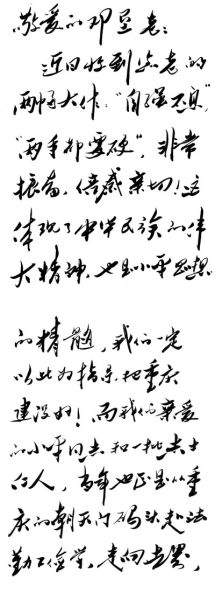 敬爱的邓垦老：
近日收到您老的
两幅大作："自强不息"，
"两手都要硬"，非常
振奋，倍感亲切！这
体现了中华民族的伟
大精神，也是小平思想
的精髓，我们一定
以此为指导，把重庆
建设好！而我们亲爱
的小平同志和一批志士
仁人，当年也正是从重
庆的朝天门码头赴法
勤工俭学，走向世界，